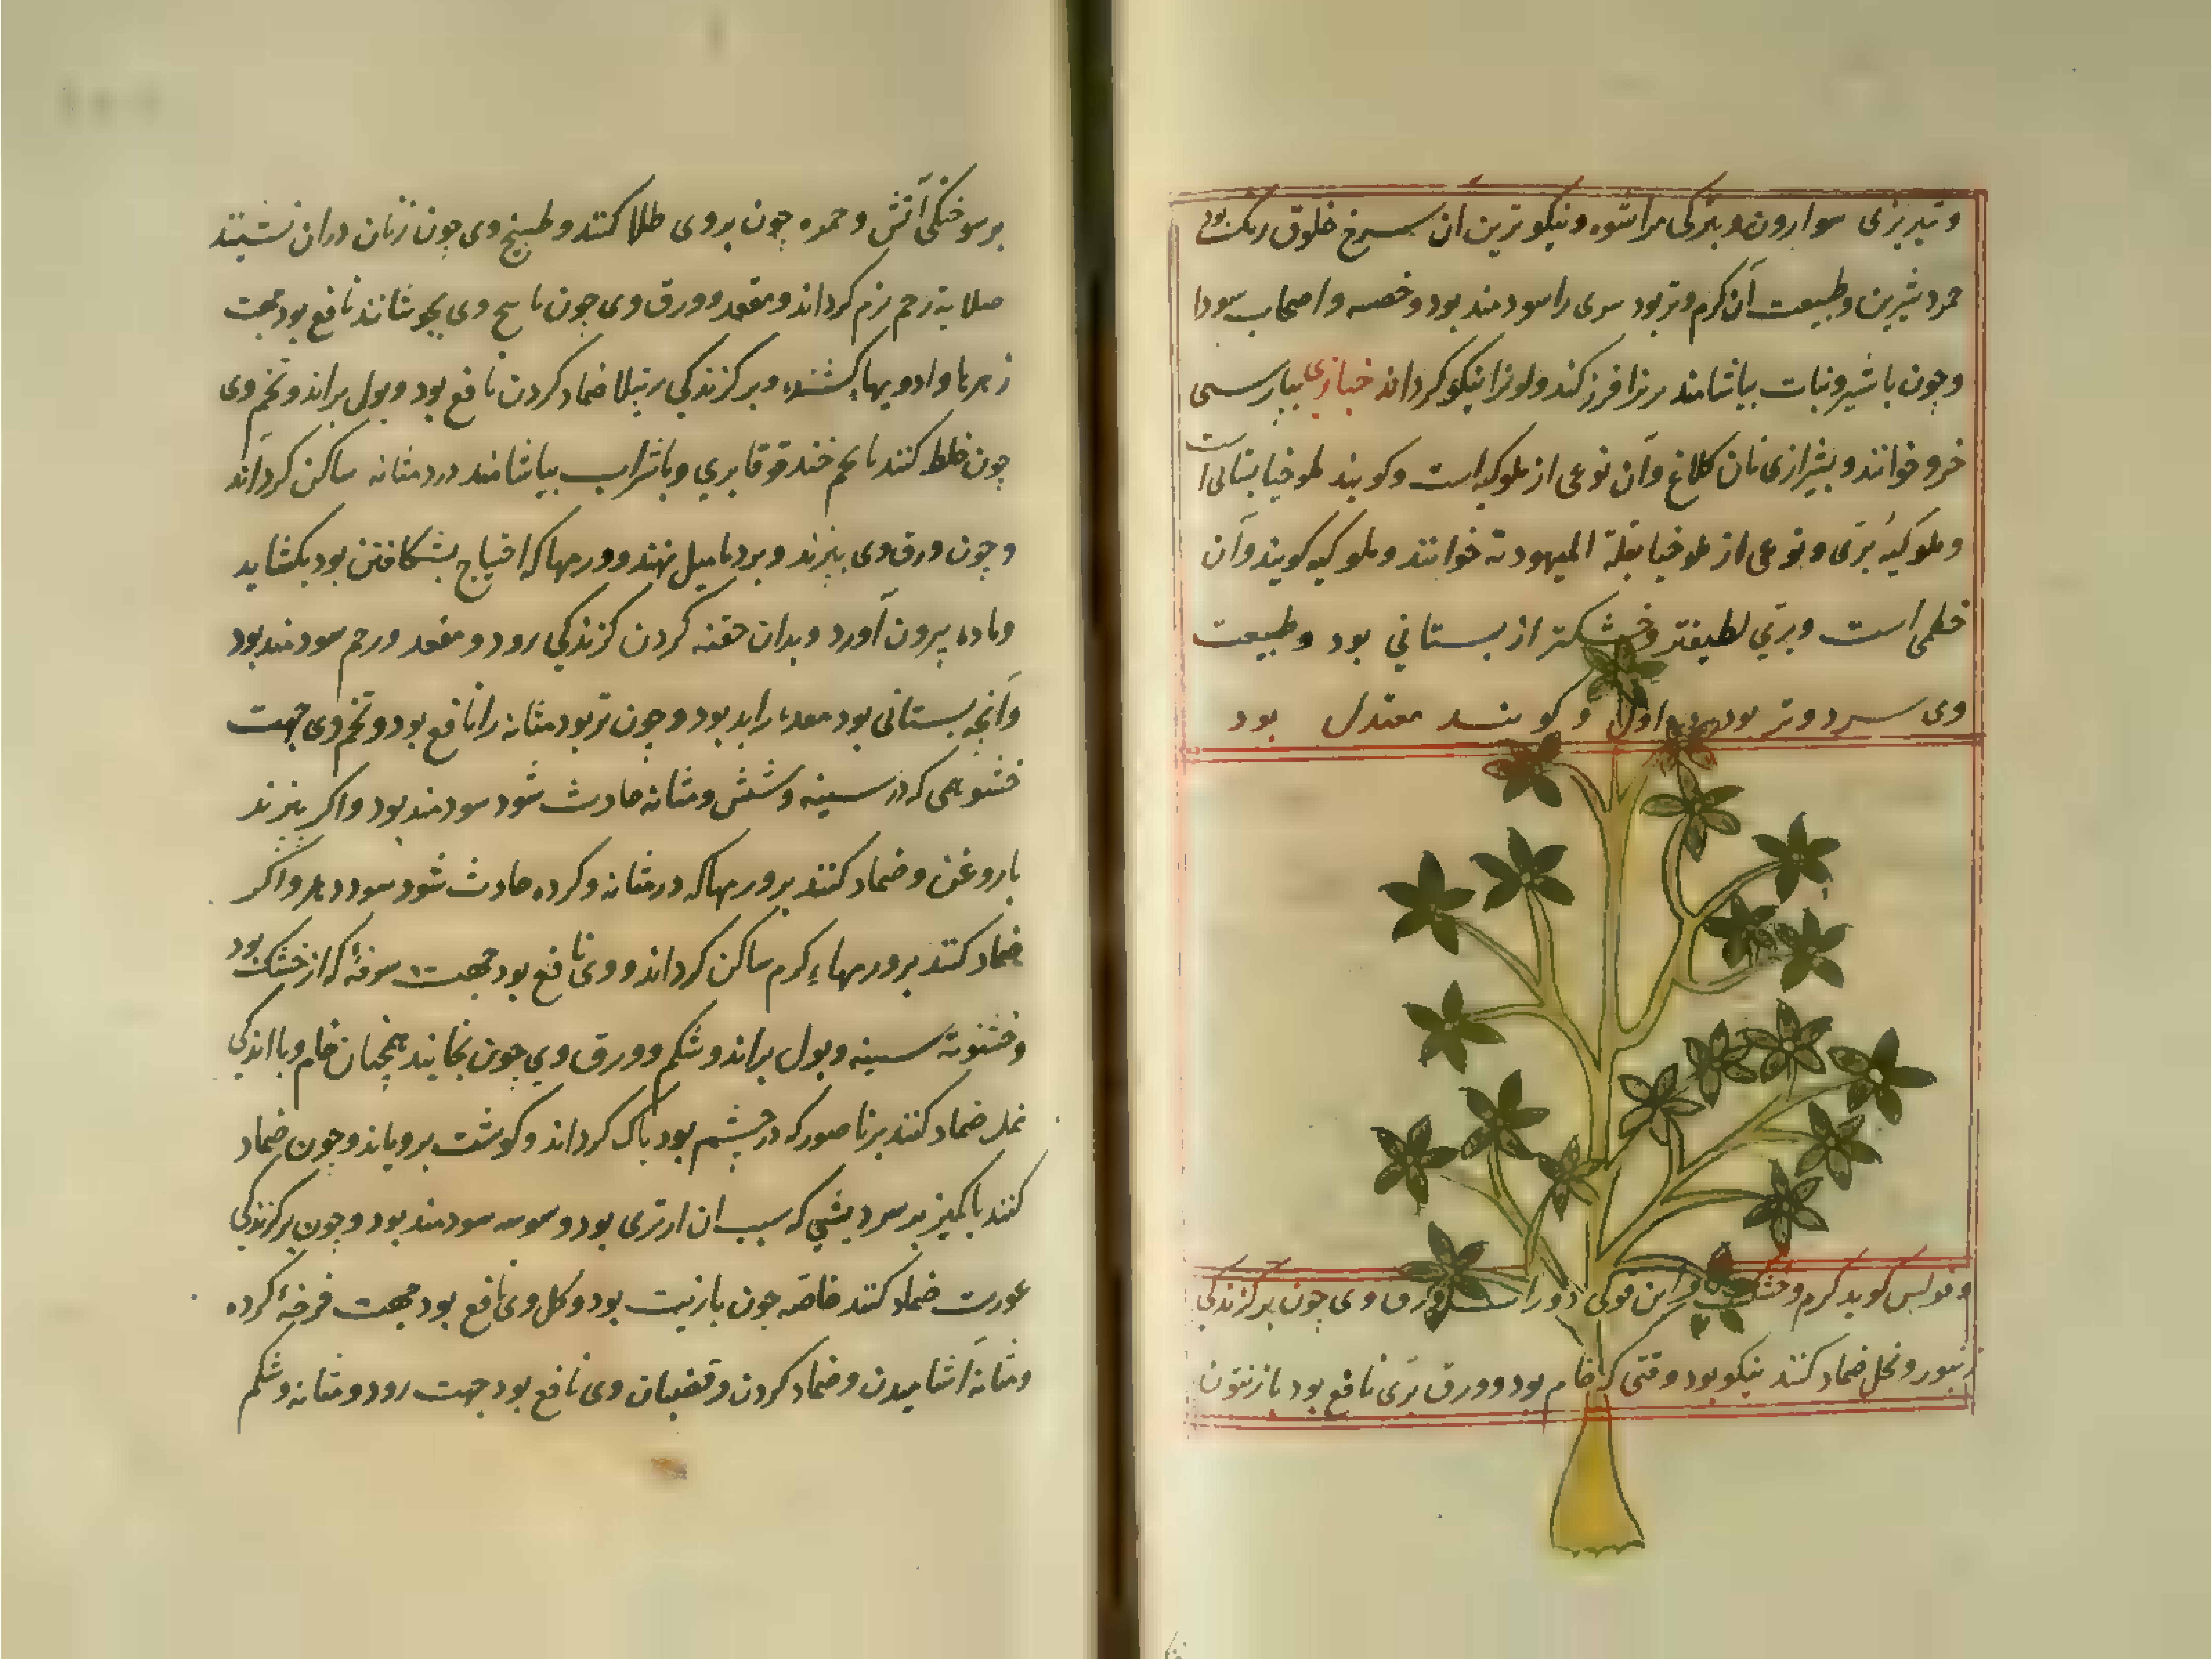 و تبریزی سوارون و بترکی مراشوه و نیکوترین ان سرخ خلوق رنک بود
شیرین و طبیعت آن کرم و تر بود سری را سودمند بود و خصیه و اصحاب سودا
و چون با شیر و نبات بیاشامند فرز کند و لونرا نیکو کرداند خبازی بپارسی
خرو خوانند و بشیرازی نان کلاغ و آن نوعی از ملوکیه است و کویند ملوخیا بستانی است
و ملوکیه بری و نوعی از ملوخیا بقلة الیهودیه خوانند و ملوکیه کویند و آن
خطمی است و بری لطیفتر و خشکتر از بستانی بود و طبیعت
وی سرد و تر بود اول و کویند معتدل بود
و کوید کرم و خشک این قوی دور است ورق وی چون بر کزندکی
زنبور و نحل ضماد کنند نیکو بود وقتی که خام بود و ورق بری نافع بود با زیتون
بر سوختکی آتش و حمره چون بروی طلا کنند و طبیخ وی چون زنان دران نشینند
صلابة رحم نرم کرداند و مقعد و ورق وی چون با بیخ وی بجوشانند نافع بود جهت
زهرها و ادویهاء کشنده و بر کزندکی رتیلا ضماد کردن نافع بود و بول براند و تخم وی
چون خلط کنند با تخم خندقوقا بری و با شراب بیاشامند درد مثانه ساکن کرداند
و چون ورق وی بپزند و بر دمامیل نهند و ورمها که احتیاج بشکافتن بود بکشاید
و ماده بیرون آورد و بدان حقنه کردن کزندکی رود و مقعد و رحم سودمند بود
و آنچه بستانی بود معده را بد بود و چون تر بود مثانه را نافع بود و تخم وی جهت
خشونتی که در سینه و شش و مثانه حادث شود سودمند بود و اکر بپزند
با روغن و ضماد کنند بر ورمها که در مثانه و کرده حادث شود سود دهد و اکر
ضماد کنند بر ورمهاء کرم ساکن کرداند و وی نافع بود جهت سرفهٔ که از خشکی بود
و خشونة سینه و بول براند و شکم و ورق وی چون بخایند همچنان خام و با اندکی
نمک ضماد کنند بر ناصور که در چشم بود پاک کرداند و کوشت برویاند و چون ضماد
کنند با کمیز بر سر ریشی که سبب ان از تری بود و سبوسه سودمند بود و چون بر کزندکی
عورت ضماد کنند خاصه چون با زیت بود و کل وی نافع بود جهت قرحهٔ کرده
و مثانه آشامیدن و ضماد کردن و قضبان وی نافع بود جهت رود و مثانه و شکم